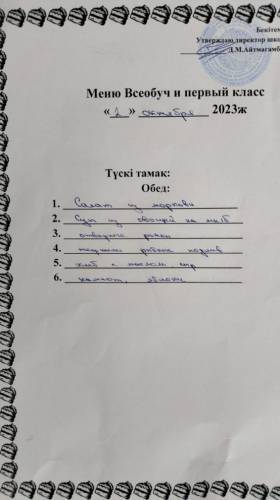 Бекітем
Утверждаю директор шко
Д.М.Айтмагамб
Меню Всеобуч и первый класс
«2» октября 2023ж
Түскі тамақ:
Обед:
1. Салат из моркови
2. Суп из овощей на м/б
3. отварные рожки
4.
5. хлеб с маслом сыр
6. компот, яблоки